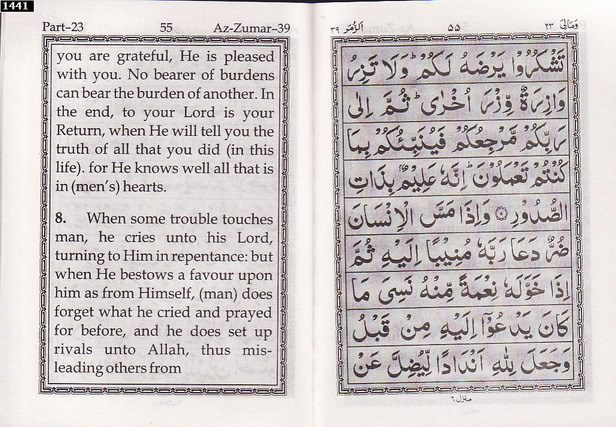 1441
Part–23 55 Az-Zumar–39
you are grateful, He is pleased
with you. No bearer of burdens
can bear the burden of another. In
the end, to your Lord is your
Return, when He will tell you the
truth of all that you did (in this
life). for He knows well all that is
in (men's) hearts.
8. When some trouble touches
man, he cries unto his Lord,
turning to Him in repentance: but
when He bestows a favour upon
him as from Himself, (man) does
forget what he cried and prayed
for before, and he does set up
rivals unto Allah, thus mis-
leading others from
وَمَالِىَ ٢٣ ٥٥ اَلزُّمَر ٣٩
تَشْكُرُوْا يَرْضَهُ لَكُمْ ؕ وَلَا تَزِرُ
وَازِرَةٌ وِّزْرَ اُخْرٰى ؕ ثُمَّ اِلٰى
رَبِّكُمْ مَّرْجِعُكُمْ فَيُنَبِّئُكُمْ بِمَا
كُنْتُمْ تَعْمَلُوْنَ ؕ اِنَّهٗ عَلِيْمٌۢ بِذَاتِ
الصُّدُوْرِ ۝ وَاِذَا مَسَّ الْاِنْسَانَ
ضُرٌّ دَعَا رَبَّهٗ مُنِيْبًا اِلَيْهِ ثُمَّ
اِذَا خَوَّلَهٗ نِعْمَةً مِّنْهُ نَسِىَ مَا
كَانَ يَدْعُوْۤا اِلَيْهِ مِنْ قَبْلُ
وَجَعَلَ لِلّٰهِ اَنْدَادًا لِّيُضِلَّ عَنْ
منزل ٦